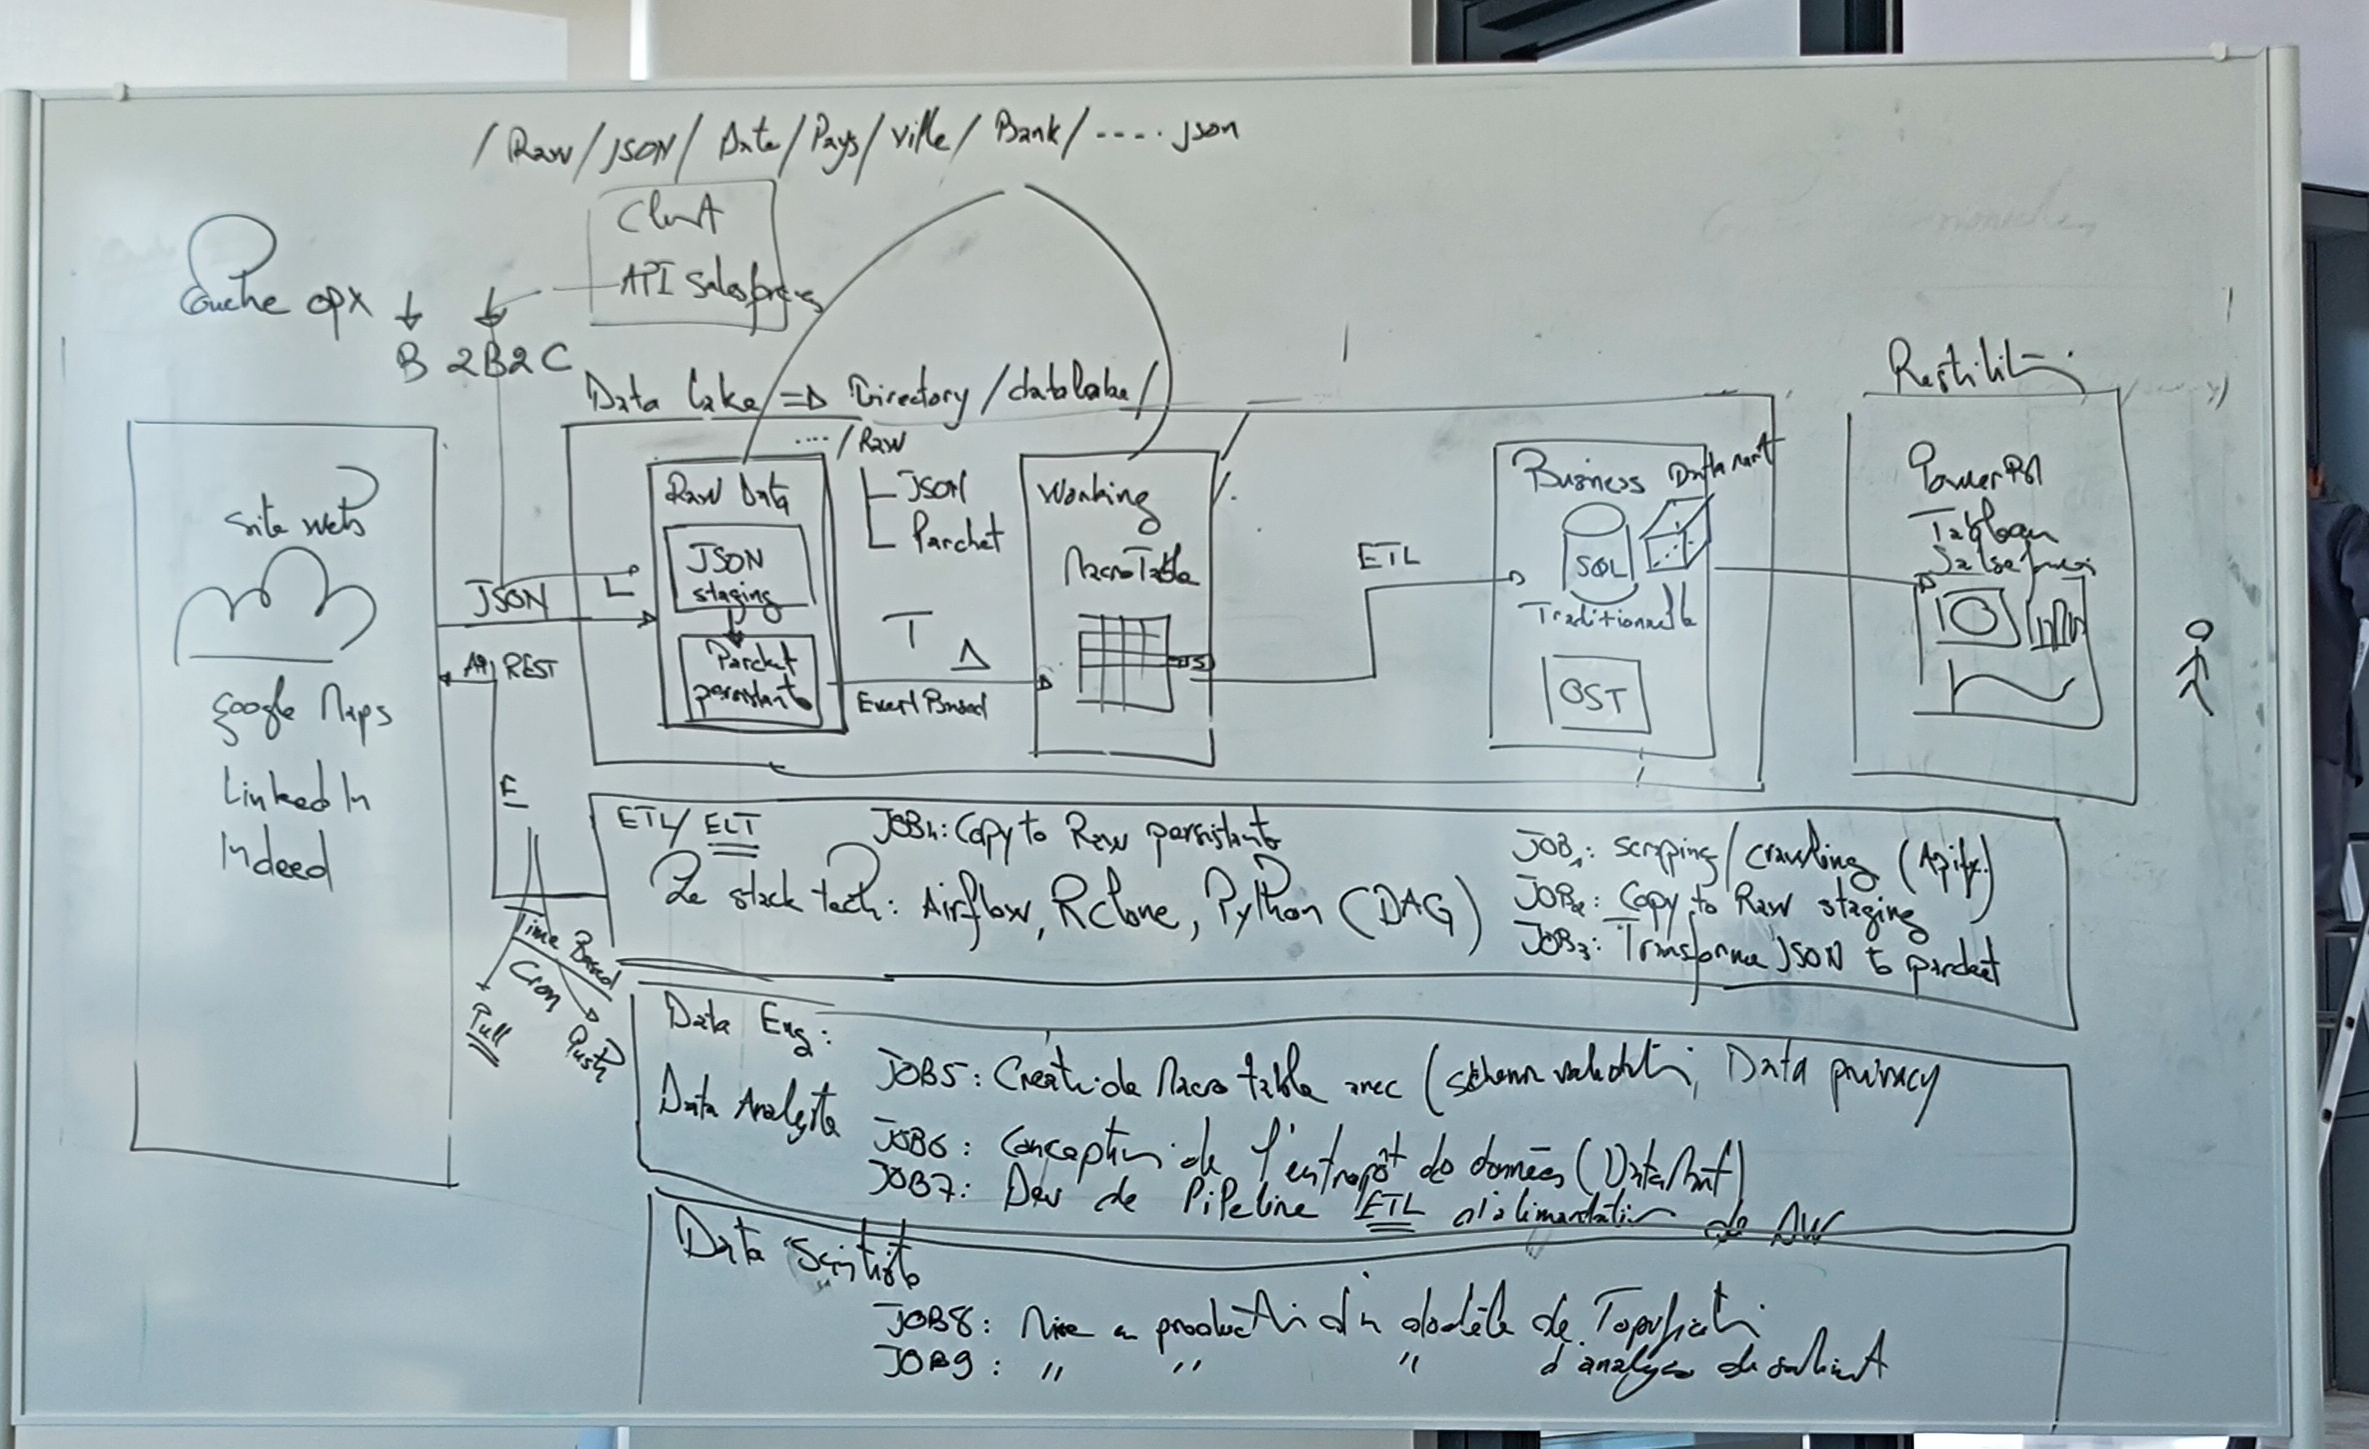 /Raw/JSON/Date/Pays/ville/Bank/.... json
Client
API Salesforces
Couche opx
B 2B2C
Data Lake => Directory/datalake/
Restitution
site webs
Google Maps
LinkedIn
Indeed
JSON
L
API REST
E
Time Based
Cron
Pull
Push
..../Raw
JSON
Parchet
Raw Data
JSON
staging
Parchet
persistant
T
Event Based
Working
Macro Table
ETL
Business
Datamart
SQL
Traditionnelle
OST
PowerBI
Tableau
ETL/ELT
JOB4: Copy to Raw persistant
Le stack tech: Airflow, Rclone, Python (DAG)
JOB1: scraping/crawling (Apify)
JOB2: Copy to Raw staging
JOB3: Transforme JSON to parchet
Data Eng:
Data Analyste
JOB5: Création de Macro table avec (schema validation, Data privacy
JOB6: Conception de l'entropôt de données (DataMart)
JOB7: Dev de PiPeline ETL d'alimentation de DW
Data Scintist
JOB8: Mise en production d'n modèle de
JOB9: " " " d'analyse de